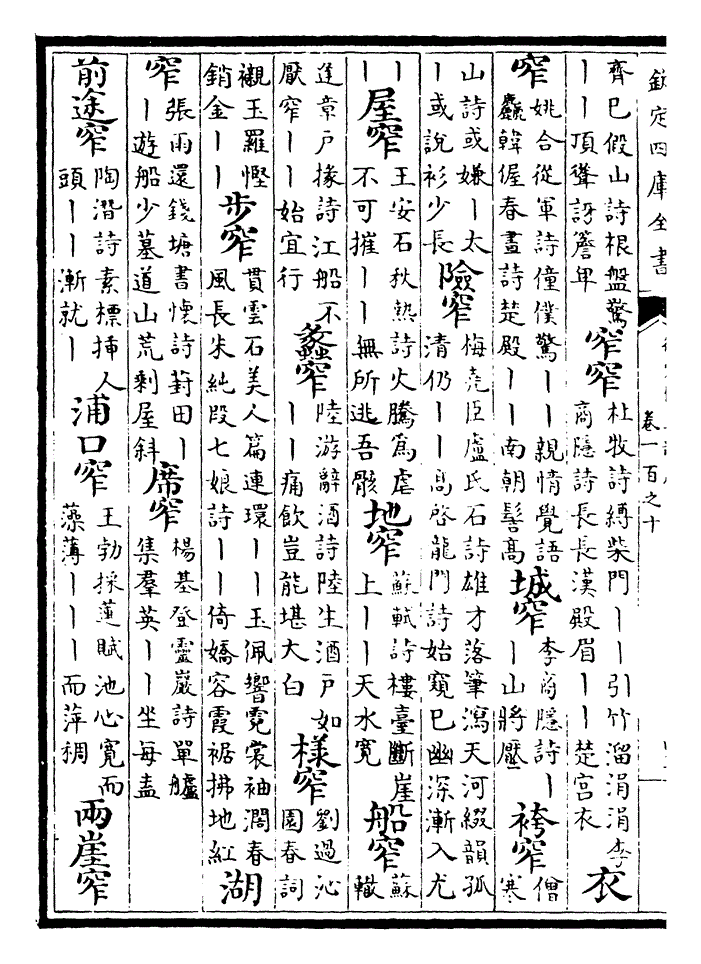 欽定四庫全書
卷一百之十
齊已假山詩根盤驚
｜｜頂聳訝簷卑
窄窄
杜牧詩縛柴門｜｜引竹溜涓涓李
商隱詩長長漢殿眉｜｜楚宮衣
衣
窄
姚合從軍詩僮僕驚｜｜親情覺語
麤韓偓春晝詩楚殿｜｜南朝髻高
城窄
李商隱詩｜
｜山將壓
袴窄
僧
寒
山詩或嫌｜太
｜或說衫少長
險窄
梅堯臣盧氏石詩雄才落筆瀉天河綴韻孤
清仍｜｜高啓龍門詩始窺已幽深漸入尤
｜
｜
屋窄
王安石秋熱詩火騰爲虐
不可摧｜｜無所逃吾骸
地窄
蘇軾詩樓臺斷崖
上｜｜天水寬
船窄
蘇
轍
逢章戶掾詩江船不
厭窄｜｜始宜行
蠡窄
陸游辭酒詩陸生酒戶如
｜｜痛飲豈能堪大白
樣窄
劉過沁
園春詞
襯玉羅慳
銷金｜｜
步窄
貫雲石美人篇連環｜｜玉佩響霓裳袖濶春
風長朱純段七娘詩｜｜倚嬌容霞裾拂地紅
湖
窄
張雨還錢塘書懷詩葑田｜
｜遊船少墓道山荒剩屋斜
席窄
楊基登靈巖詩單艫
集羣英｜｜坐每盍
前途窄
陶潛詩素標揷人
頭｜｜漸就｜
浦口窄
王勃採蓮賦池心寬而
藻薄｜｜｜而萍稠
兩崖窄